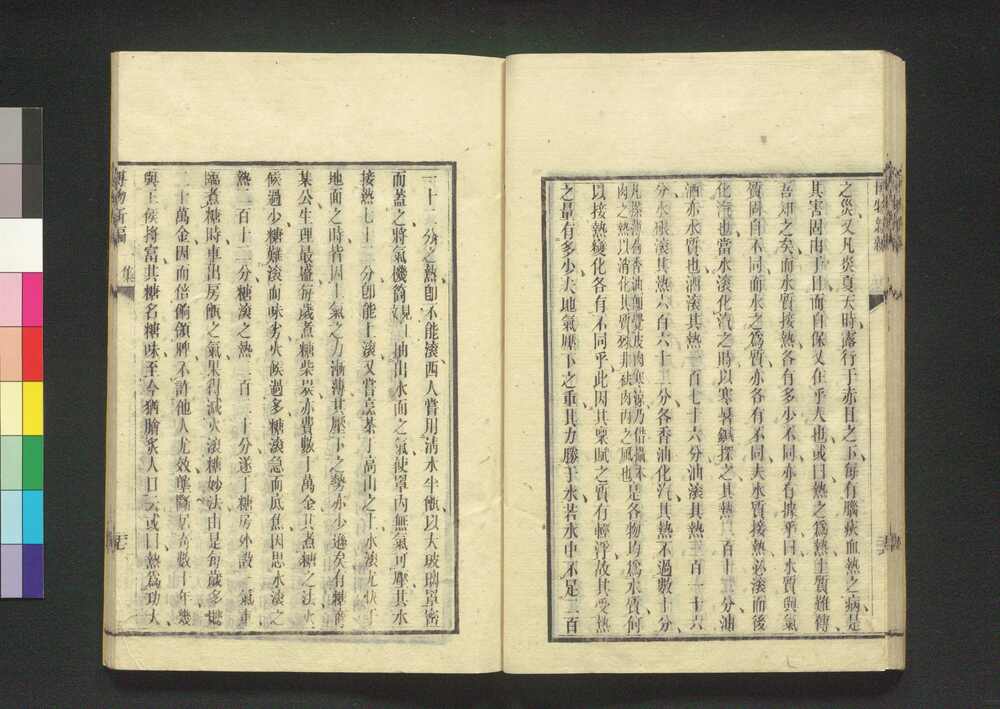 之災又凡炎夏天時露行于赤日之下每有腦痰血熱之病是
其害固由于日而自保又在乎人也或曰熱之爲熱土質難傳
吾知之矣而水質接熱各有多少不同亦有據乎曰水質與氣
質固自不同而水之爲質亦各有不同夫水質接熱必滚而後
化汽也當水滚化汽之時以寒暑鍼探之其熱二百十二分油
酒亦水質也酒滚其熱一百七十六分油滚其熱三百一十六
分水銀滚其熱六百六十二分各香油化汽其熱不過數十分
凡搽薄荷香油便覺皮肉寒涼乃借攝本
肉之熱以消化其質殊非祛肉内之風也
是各物均爲水質何
以接熱變化各有不同乎此因其稟賦之質有輕浮故其受熱
之量有多少夫地氣壓下之重其力勝于水若水中不足二百
一十二分之熱即不能滚西人嘗用清水半甑以大玻璃罩密
而蓋之將氣機筒抽出水面之氣使罩内無氣可壓其水
接熱七十二分卽能上滚又嘗烹茶于高山之上水滚尤快于
地面之時皆因上氣之力漸薄其壓下之勢亦少遜矣有糖商
某公生理最盛每歲煮糖柴炭亦費數十萬金其煮糖之法火
候過少糖難滚而味劣火候過多糖滚急而底焦因思水滚之
熱二百十二分糖滚之熱二百三十分遂于糖房外設一氣車
臨煮糖時車出房甑之氣果得減火滚糖妙法由是每歲多
二十萬金因而倍備領牌不許他人尤效壟斷居奇數十年幾
與王候將富其糖名糖味至今猶膾炙人口又或曰熱爲功大
博物新編
集